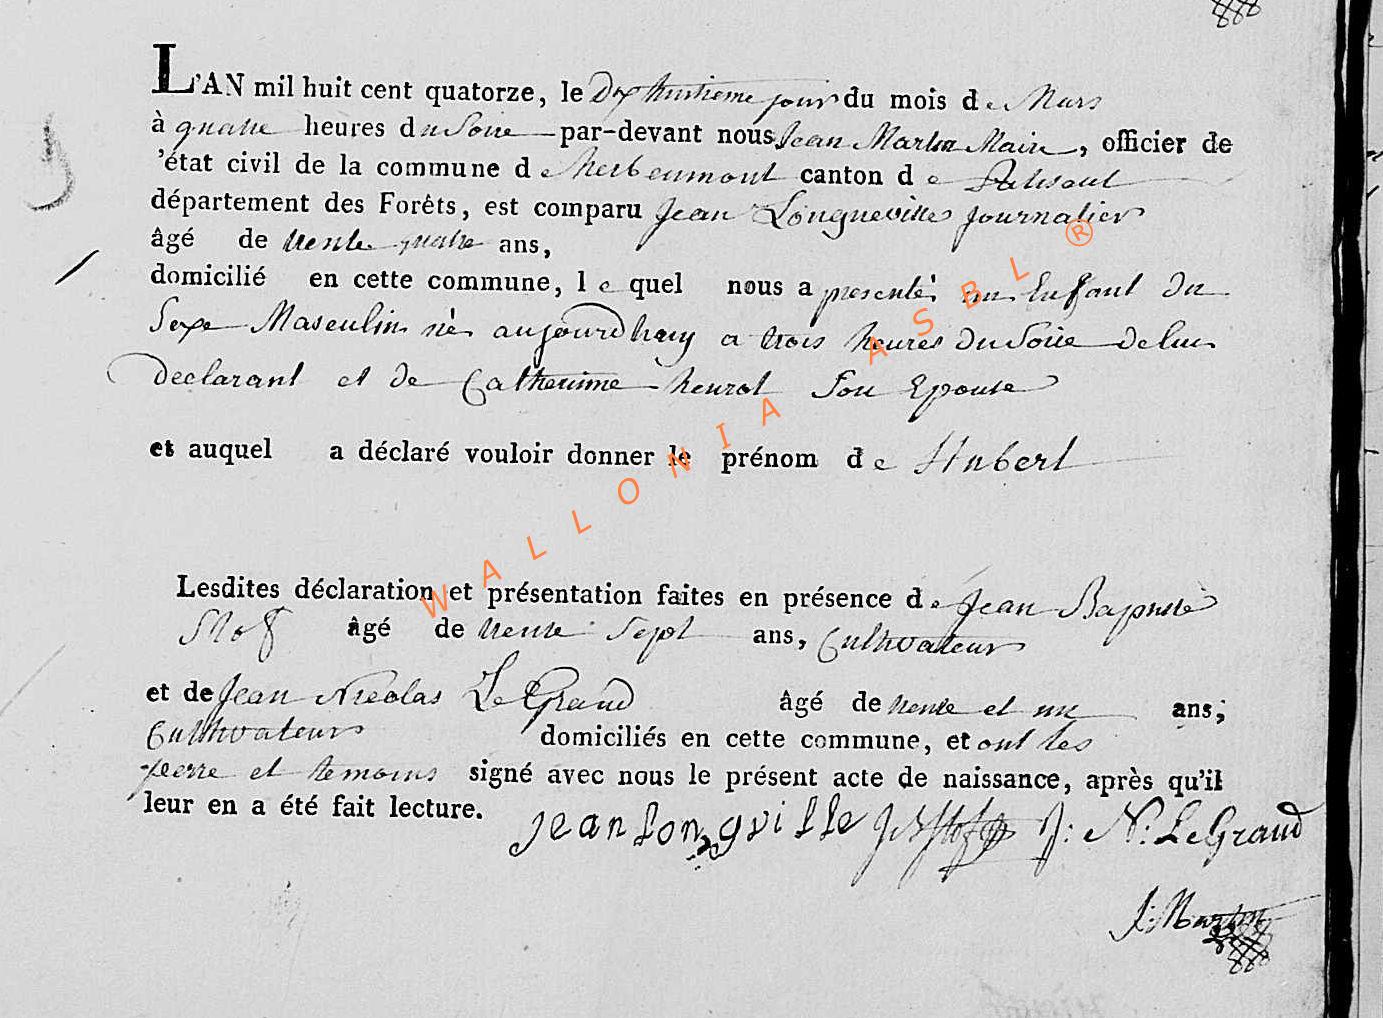 L'AN mil huit cent quatorze, le Dix huitieme jour du mois de Mars
à quatre heures du Soire par-devant nous Jean Martin Maire, officier de
'état civil de la commune de herbeumont canton de Palisoul
département des Forêts, est comparu Jean Longueville journalier
âgé de trente quatre ans,
domicilié en cette commune, le quel nous a presenté un Enfant du
Sexe Masculin né aujourdhuy a trois heures du Soire de lui
declarant et de Catherinne henrot Son Epouse
et auquel a déclaré vouloir donner le prénom de Hubert
Lesdites déclaration et présentation faites en présence de Jean Baptiste
âgé de trente Sept ans, Cultivateur
et de Jean Nicolas LeGrand âgé de trente et un ans;
Cultivateurs domiciliés en cette commune, et ont les
peere et temoins signé avec nous le présent acte de naissance, après qu'il
leur en a été fait lecture.
jean longville J: N: LeGrand
J: Martin
WALLONIA ASBL ®